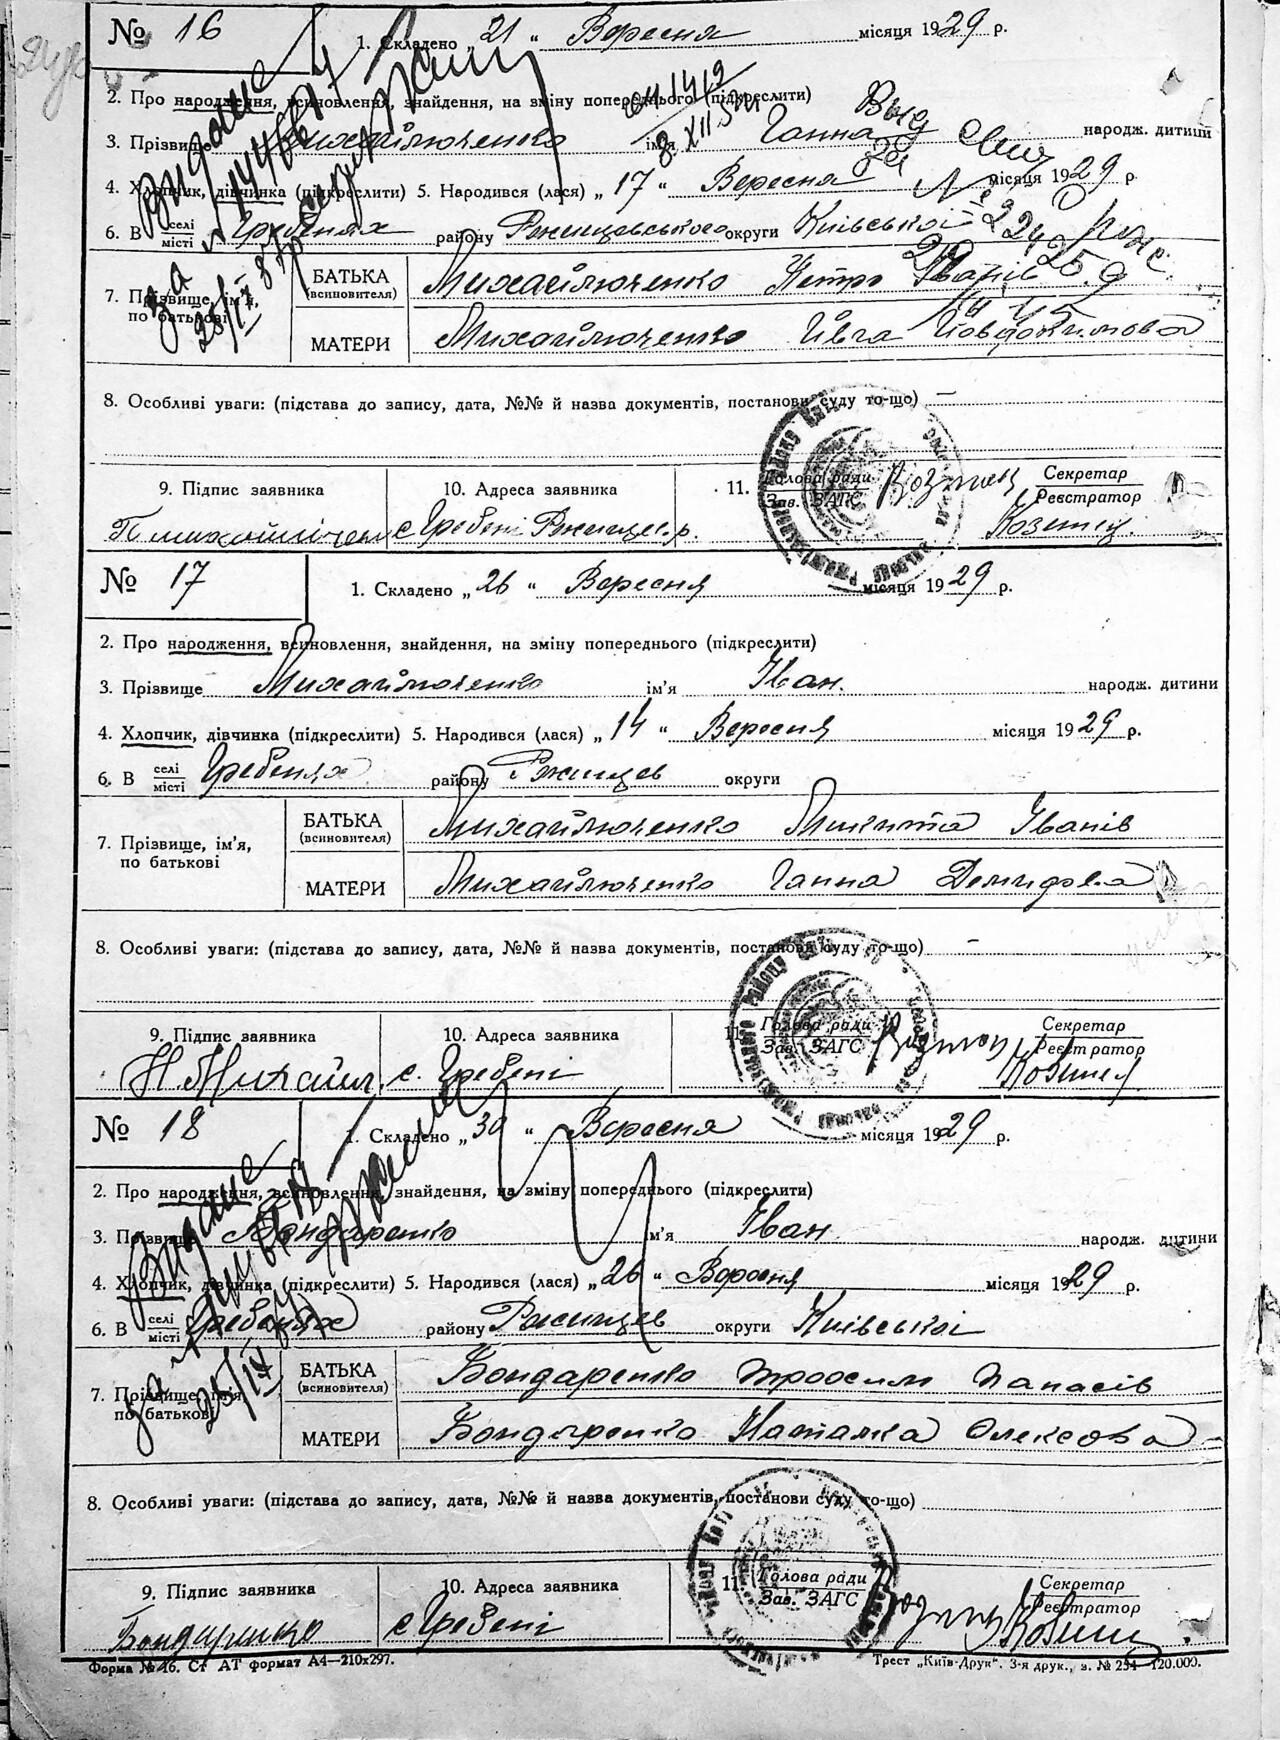 № 16
1. Складено „ 21 “ Вересня місяця 1929 р.
2. Про народження, всиновлення, знайдення, на зміну попереднього (підкреслити)
3. Прізвище Михайлюченко ім'я Ганна народж. дитини
4. Хлопчик, дівчинка (підкреслити) 5. Народився (лася) „ 17 “ Вересня місяця 1929 р.
6. В селі місті Гребенях району Ржищевського округи Київської
7. Прізвище, ім'я, по батькові
БАТЬКА (всиновителя) Михайлюченко Петро Іванів
МАТЕРИ Михайлюченко Ївга Йовдокимова
8. Особливі уваги: (підстава до запису, дата, №№ й назва документів, постанови суду то-що) —
9. Підпис заявника
10. Адреса заявника
11. Голова ради Зав. ЗАГС
Секретар Реєстратор
с Гребені Ржищев. р.
№ 17
1. Складено „ 26 “ Вересня місяця 1929 р.
2. Про народження, всиновлення, знайдення, на зміну попереднього (підкреслити)
3. Прізвище Михайлюченко ім'я Іван. народж. дитини
4. Хлопчик, дівчинка (підкреслити) 5. Народився (лася) „ 14 “ Вересня місяця 1929 р.
6. В селі місті Гребенях району Ржищев округи
7. Прізвище, ім'я, по батькові
БАТЬКА (всиновителя) Михайлюченко Микита Іванів
МАТЕРИ Михайлюченко Ганна Демидова
8. Особливі уваги: (підстава до запису, дата, №№ й назва документів, постанови суду то-що) —
9. Підпис заявника
10. Адреса заявника
11. Голова ради Зав. ЗАГС
Секретар Реєстратор
Н. Михайл с. Гребені
№ 18
1. Складено „ 30 “ Вересня місяця 1929 р.
2. Про народження, всиновлення, знайдення, на зміну попереднього (підкреслити)
3. Прізвище Бондаренко ім'я Іван. народж. дитини
4. Хлопчик, дівчинка (підкреслити) 5. Народився (лася) „ 26 “ Вересня місяця 1929 р.
6. В селі місті Гребенях району Ржищев округи Київської
7. Прізвище, ім'я, по батькові
БАТЬКА (всиновителя) Бондаренко Трохим Панасів
МАТЕРИ Бондаренко Наталка Олексова
8. Особливі уваги: (підстава до запису, дата, №№ й назва документів, постанови суду то-що)
9. Підпис заявника
10. Адреса заявника
11. Голова ради Зав. ЗАГС
Секретар Реєстратор
Бондаренко с Гребені
Форма № 16. Ст АТ формат А4—210x297.
Трест „Київ-Друк“. 3-я друк., з. № 254—120.000.